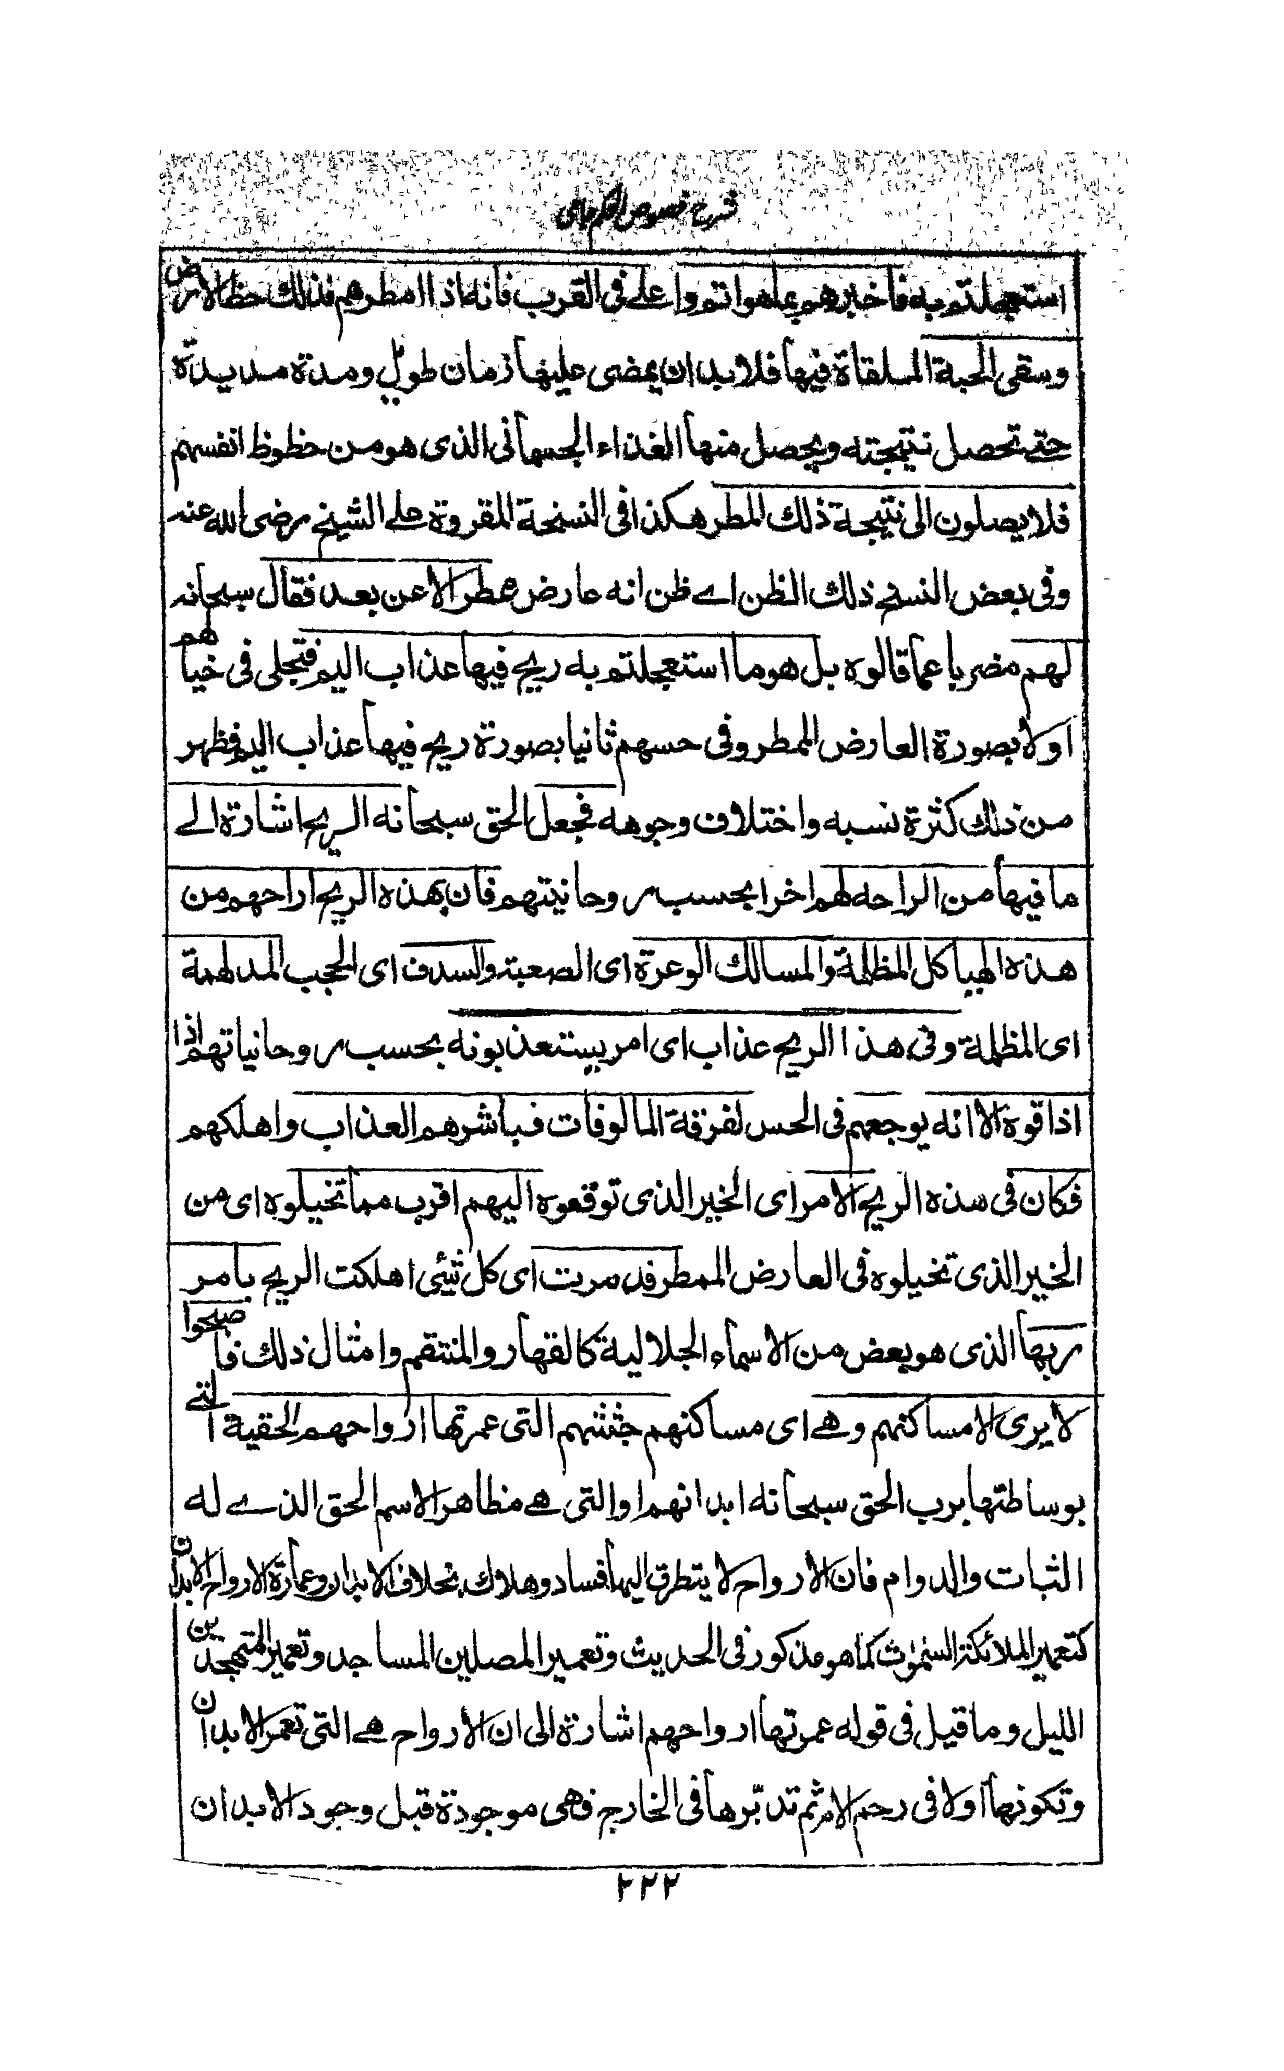 شرح فصوص الحکم جامی
استعجلتم به فاخبرهم بماهواتم واعلى فى القرب فانه اذا امطرهم فذلك حظ الارض
وسقى الحبة الملقاة فيها فلابد ان يمضى عليها زمان طويل ومدة مديدة
حتى تحصل نتيجته ويحصل منها الغذاء الجسمانى الذى هو من حظوظ انفسهم
فلا يصلون الى نتيجة ذلك المطر هكذا فى النسخة المقروة على الشيخ رضى الله عنه
وفى بعض النسخ ذلك الظن اے ظن انه عارض ممطر الا عن بعد فقال سبحانه
لهم مضربا عما قالوه بل هو ما استعجلتم به ريح فيها عذاب اليم فتجلى فى خيالهم
اولا بصورة العارض الممطر وفى حسهم ثانيا بصورة ريح فيها عذاب اليم فظهر
من ذلك كثرة نسبه واختلاف وجوهه فجعل الحق سبحانه الريح اشارة الے
ما فيها من الراحه لهم اخرا بحسب روحانيتهم فان بهذه الريح اراحهم من
هذه الهياكل المظلمة والمسالك الوعرة اى الصعبة والسدف اى الحجب المدلهمة
اى المظلمة وفى هذا الريح عذاب اى امر يستعذبونه بحسب روحانياتهم اذا
اذا قوة الا انه يوجعهم فى الحس لفرقة المالوفات فباشرهم العذاب واهلكهم
فكان فى هذه الريح الامر اى الخير الذى توقعوه اليهم اقرب مما تخيلوه اى من
الخير الذى تخيلوه فى العارض الممطر فدمرت اى كل شئى اهلكت الريح بامر
ربها الذى هو بعض من الاسماء الجلالية كالقهار والمنتقم وامثال ذلك فاصبحوا
لا يرى الا مساكنهم وهے اى مساكنهم جثثهم التى عمرتها ارواحهم الحقية التے
بوساطتها برب الحق سبحانه ابدانهم او التى هے مظاهر الاسم الحق الذے له
الثبات والدوام فان الارواح لا يتطرق اليها فساد وهلاك بخلاف الابدان وعمارة الارواح الابدان
كتعمير الملائكة السمٰوٰت كما هو مذكور فى الحديث وتعمير المصلين المساجد وتعمير المتهجدين
الليل وما قيل فى قوله عمرتها ارواحهم اشارة الى ان الارواح هے التى تعمر الابدان
وتكونها اولا فى رحم الام ثم تدبّرها فى الخارج فهى موجودة قبل وجود الابدان
٢٢٢